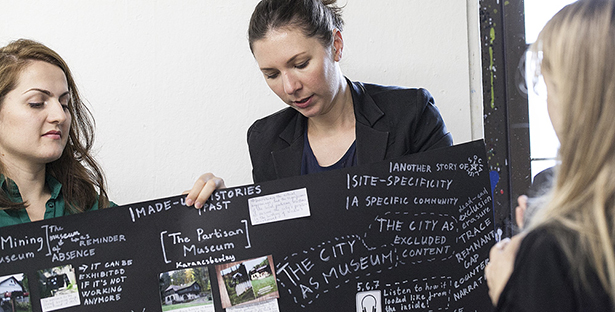 MADE-UP HISTORIES
PAST
ANOTHER STORY OF
SITE-SPECIFICITY
A SPECIFIC COMMUNITY
Mining
Museum
[The museum
as REMINDER
OF ABSENCE
→ IT CAN BE
EXHIBITED
IF IT'S NOT
WORKING
ANYMORE
[The Partisan
Museum]
THE CITY
AS MUSEUM
THE CITY AS
EXCLUDED
CONTENT
exclusion
erasure
TRACE
REMNANT
GAP
COUNTER
NARRATIVE
5, 6, 7
Listen how it
looked like from
the inside!